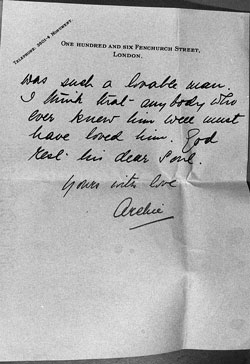 TELEPHONE: 5501-4 MONUMENT.
ONE HUNDRED AND SIX FENCHURCH STREET,
LONDON.
was such a lovable man.
I think that anybody who
ever knew him well must
have loved him. God
rest his dear Soul.
Yours with love
Archie